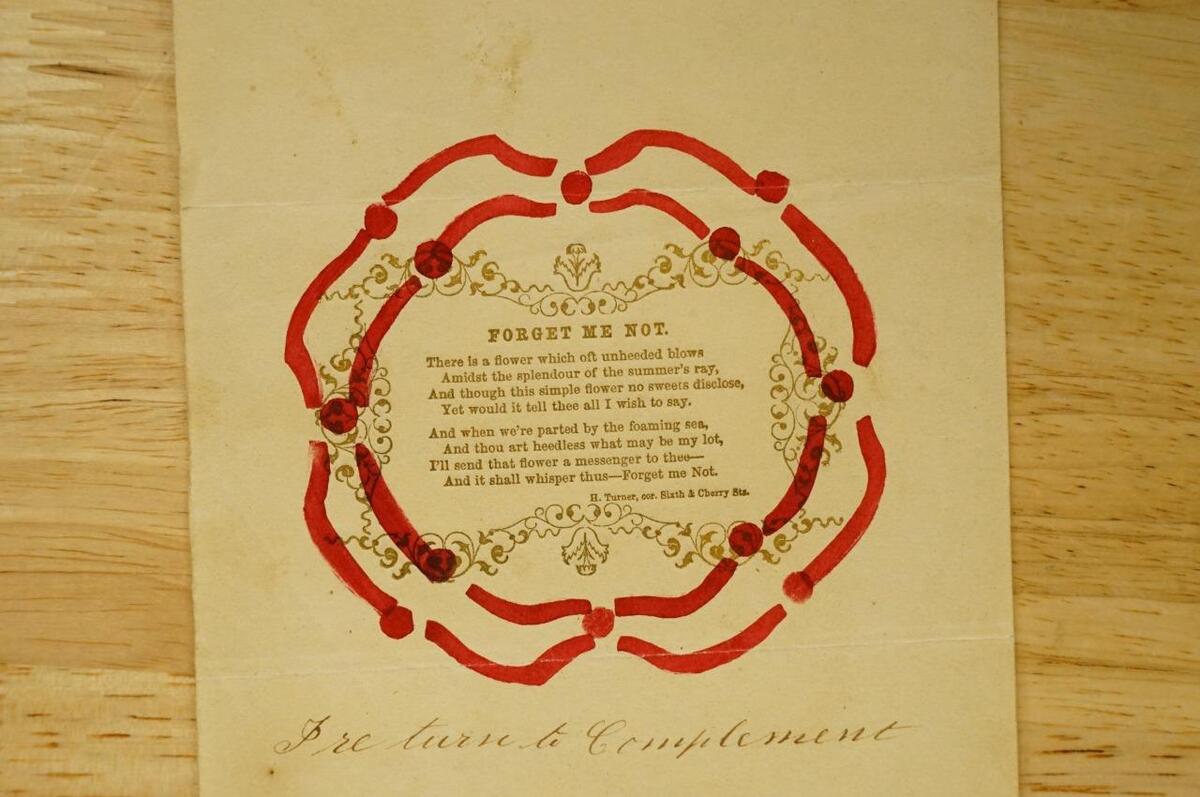 FORGET ME NOT.
There is a flower which oft unheeded blows
Amidst the splendour of the summer's ray,
And though this simple flower no sweets disclose,
Yet would it tell thee all I wish to say.
And when we're parted by the foaming sea,
And thou art heedless what may be my lot,
I'll send that flower a messenger to thee—
And it shall whisper thus—Forget me Not.
H. Turner, cor. Sixth & Cherry Sts.
I re turn to Complement